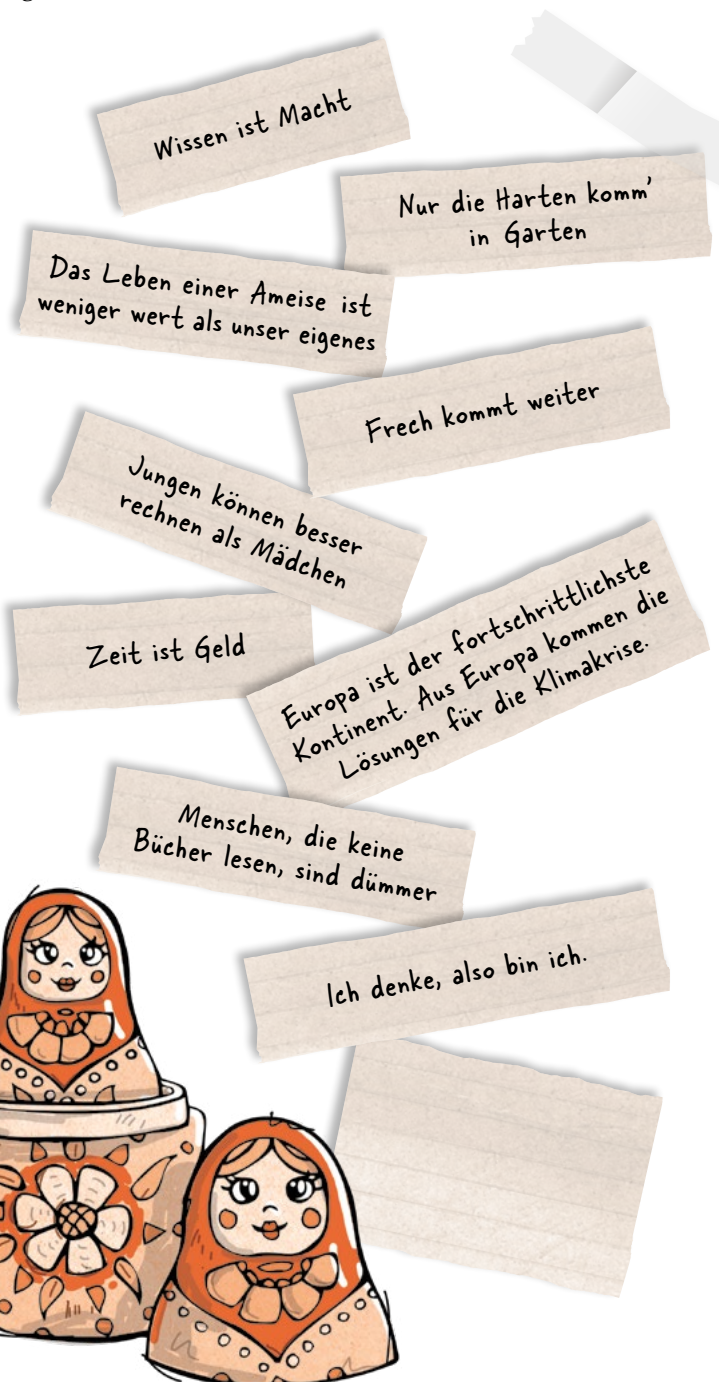 Wissen ist Macht
Nur die Harten komm'
in Garten
Das Leben einer Ameise ist
weniger wert als unser eigenes
Frech kommt weiter
Jungen können besser
rechnen als Mädchen
Zeit ist Geld
Europa ist der fortschrittlichste
Kontinent. Aus Europa kommen die
Lösungen für die Klimakrise.
Menschen, die keine
Bücher lesen, sind dümmer
Ich denke, also bin ich.